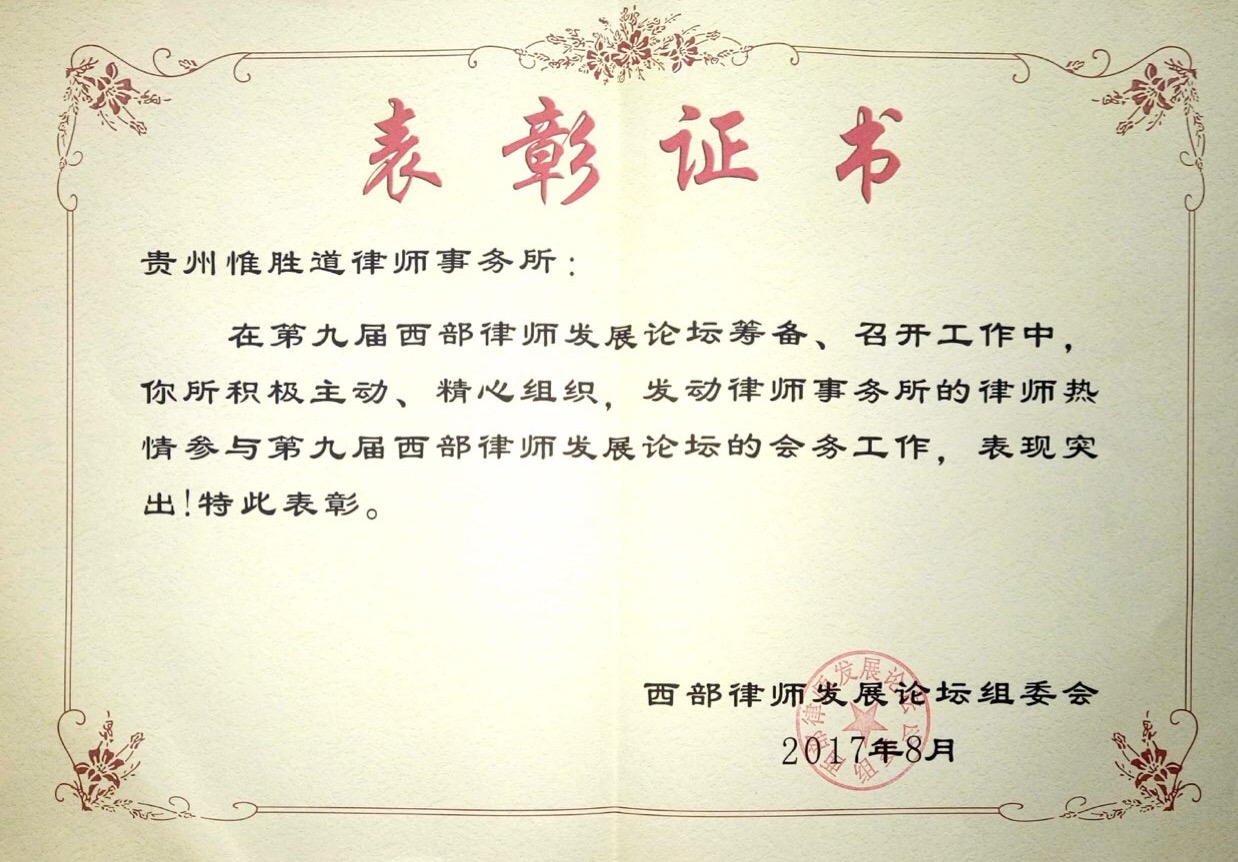 表彰证书
贵州惟胜道律师事务所：
在第九届西部律师发展论坛筹备、召开工作中，
你所积极主动、精心组织，发动律师事务所的律师热
情参与第九届西部律师发展论坛的会务工作，表现突
出！特此表彰。
西部律师发展论坛组委会
2017年8月